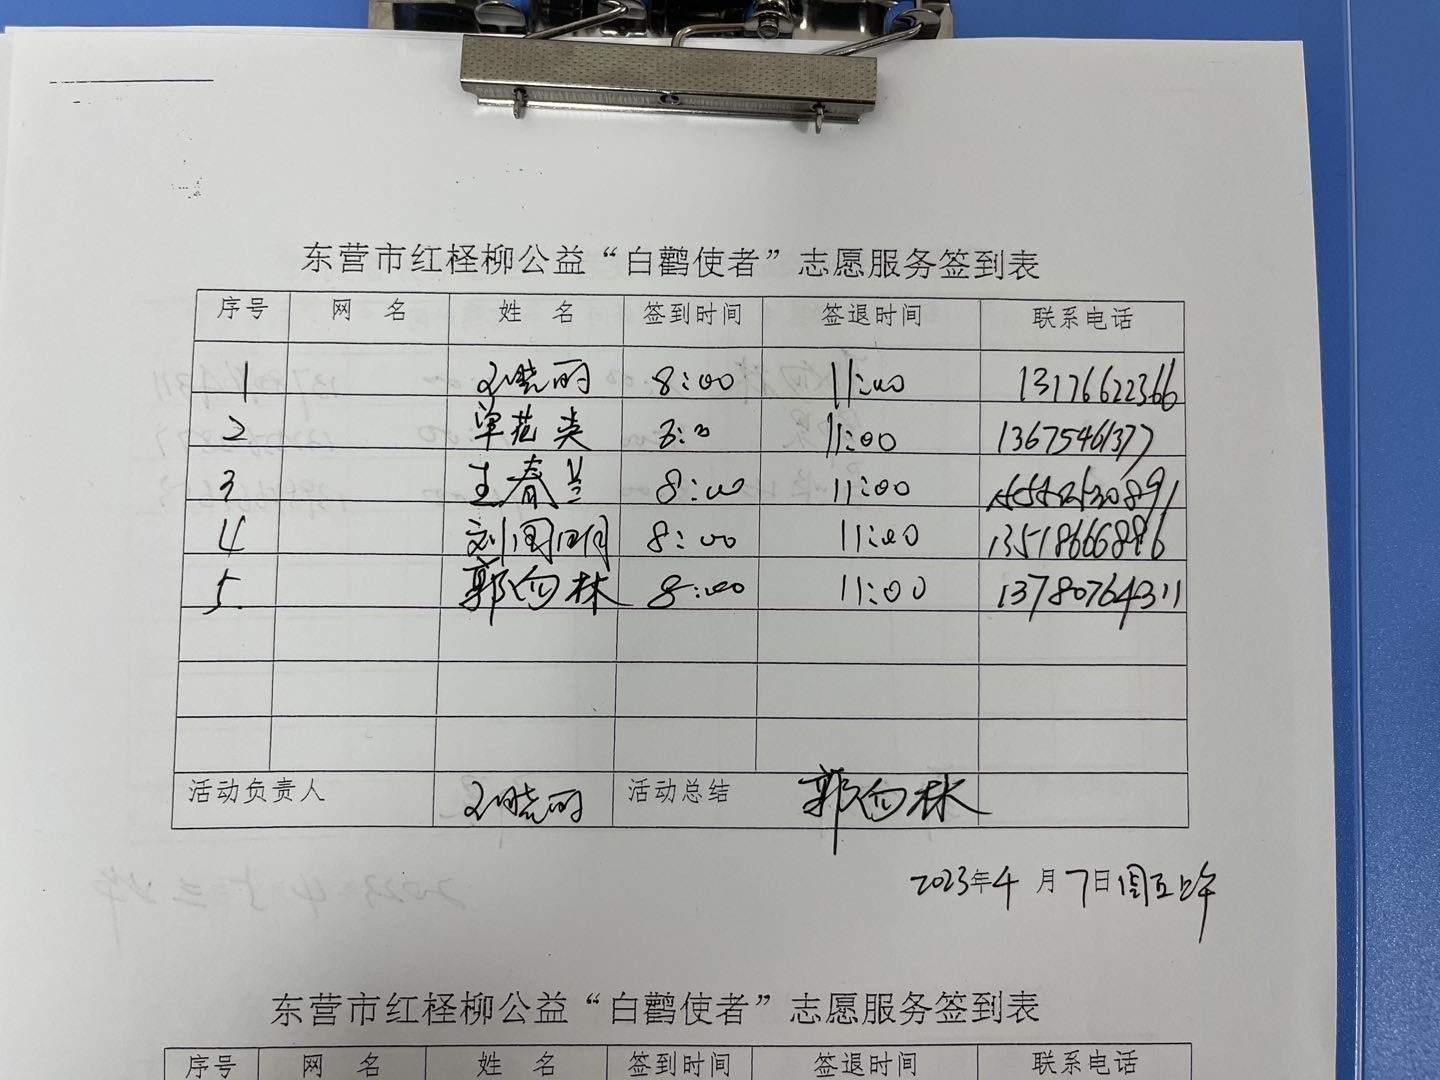 东营市红柽柳公益“白鹳使者”志愿服务签到表
序号 网 名 姓 名 签到时间 签退时间 联系电话
1 晓丽 8:00 11:00 13176622366
2 单范英 8:00 11:00 13675461377
3 王春兰 8:00 11:00
4 刘国明 8:00 11:00 13518666886
5. 郭向林 8:00 11:00 13780764311
活动负责人 晓丽 活动总结 郭向林
2023年4月7日周五上午
东营市红柽柳公益“白鹳使者”志愿服务签到表
序号 网 名 姓 名 签到时间 签退时间 联系电话